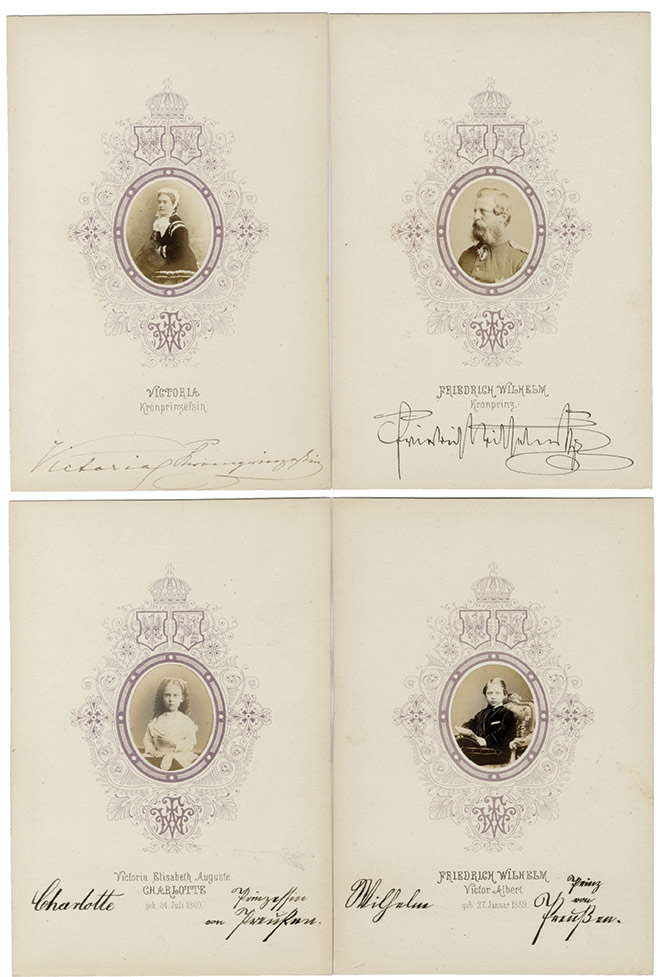 VICTORIA
Kronprinzeſsin
Victoria Kronprinzessin
FRIEDRICH WILHELM
Kronprinz.
Friedrich Wilhelm Kpz
Victoria Elisabeth Auguste
CHARLOTTE
geb. 24. Juli 1860.
Charlotte
Prinzessin
von Preußen.
FRIEDRICH WILHELM
Victor Albert
geb. 27. Januar 1859.
Wilhelm
Prinz
von
Preußen.